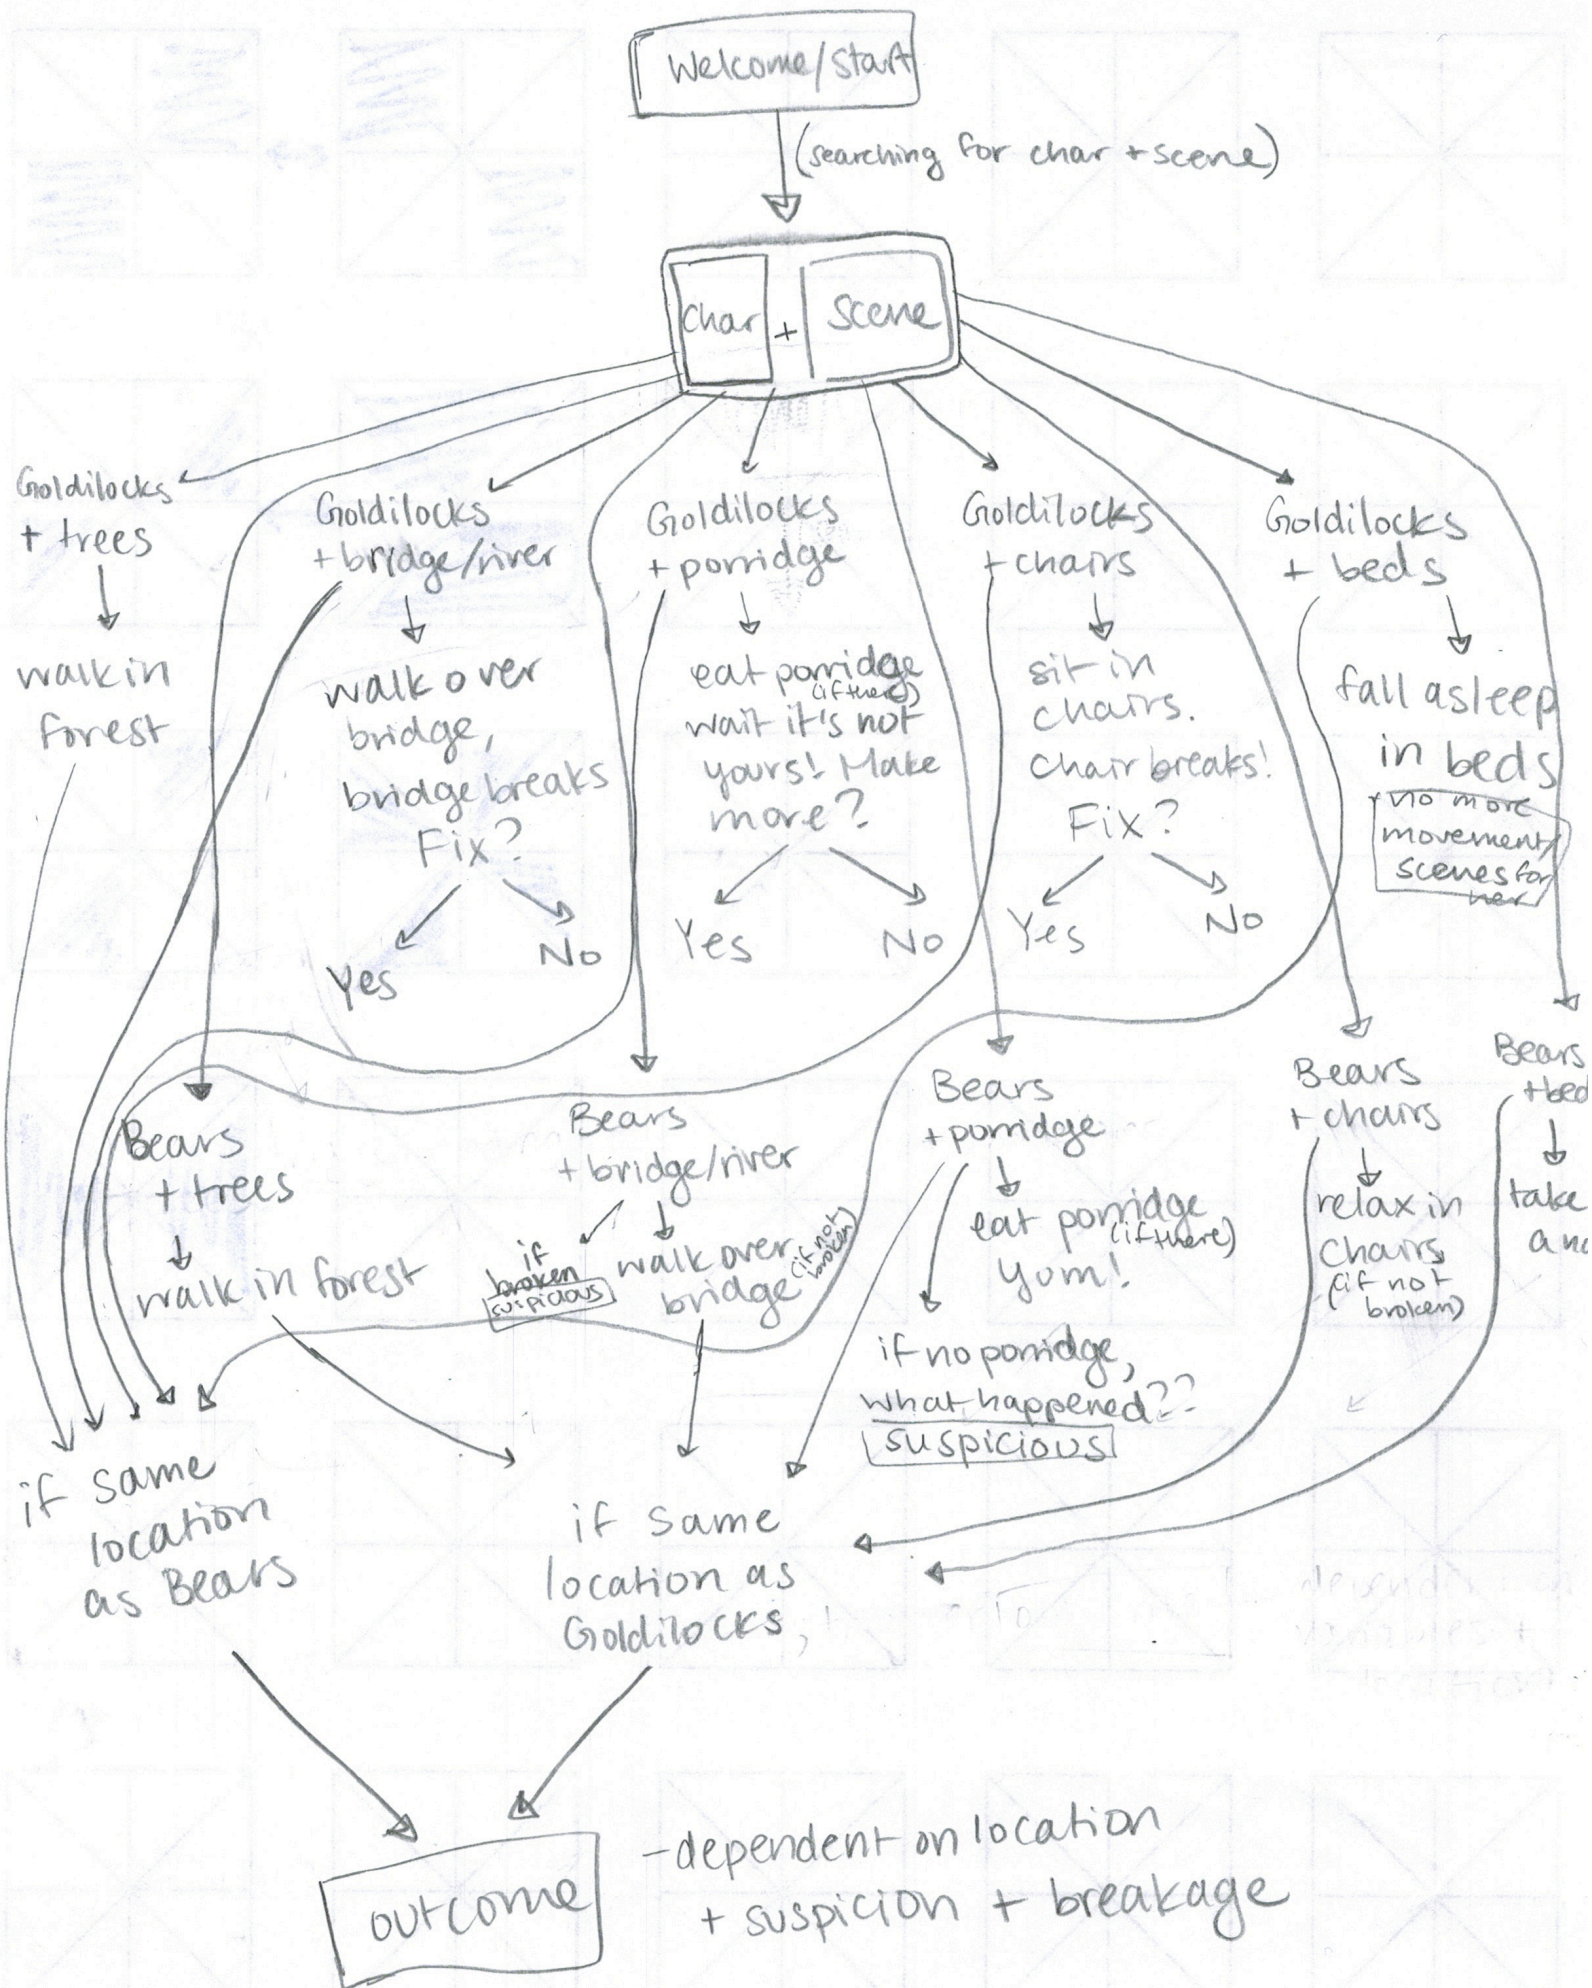 Welcome/Start
(searching for char + scene)
Char + Scene
Goldilocks
+ trees
walk in
forest
Goldilocks
+ bridge/river
walk over
bridge,
bridge breaks
Fix?
Yes
No
Goldilocks
+ porridge
eat porridge
(if there)
wait it's not
yours! Make
more?
Yes
No
Goldilocks
+ chairs
sit in
chairs.
Chair breaks!
Fix?
Yes
No
Goldilocks
+ beds
fall asleep
in beds
no more
movement/
scenes for
her
Bears
+ trees
walk in forest
Bears
+ bridge/river
if
broken
suspicious
walk over
bridge
(if not
broken)
Bears
+ porridge
eat porridge
(if there)
Yum!
if no porridge,
what happened??
suspicious
Bears
+ chairs
relax in
chairs
(if not
broken)
Bears
+ bed
take
a na
if same
location
as Bears
if same
location as
Goldilocks,
outcome
- dependent on location
+ suspicion + breakage